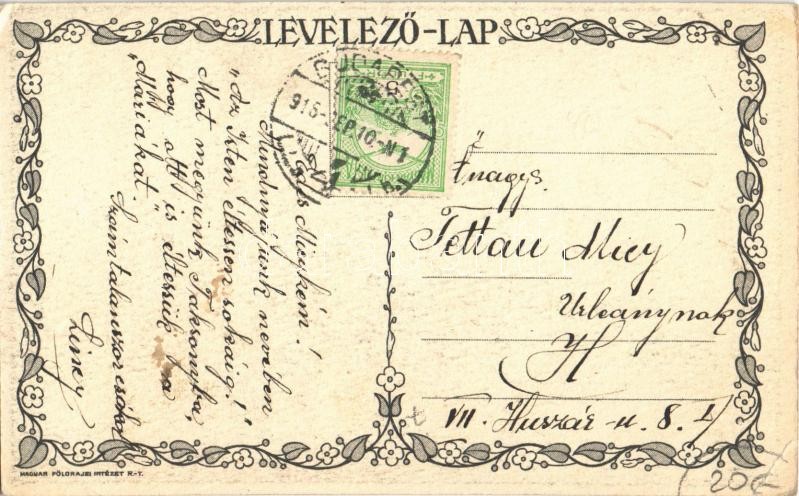 LEVELEZŐ-LAP
BUDAPEST
915 SEP. 10.-N 1
Édes Micykém!
Mindnyájunk nevében
"Az Isten éltessen sokáig!"
Most megyünk Taksonyba,
hogy ott is éltessük a
"Máriákat."
Számtalanszor csókol
Őnagys.
Tettau Micy
Urleánynak
H
VII. Huszár-u. 8. I
MAGYAR FÖLDRAJZI INTÉZET R.-T.
20